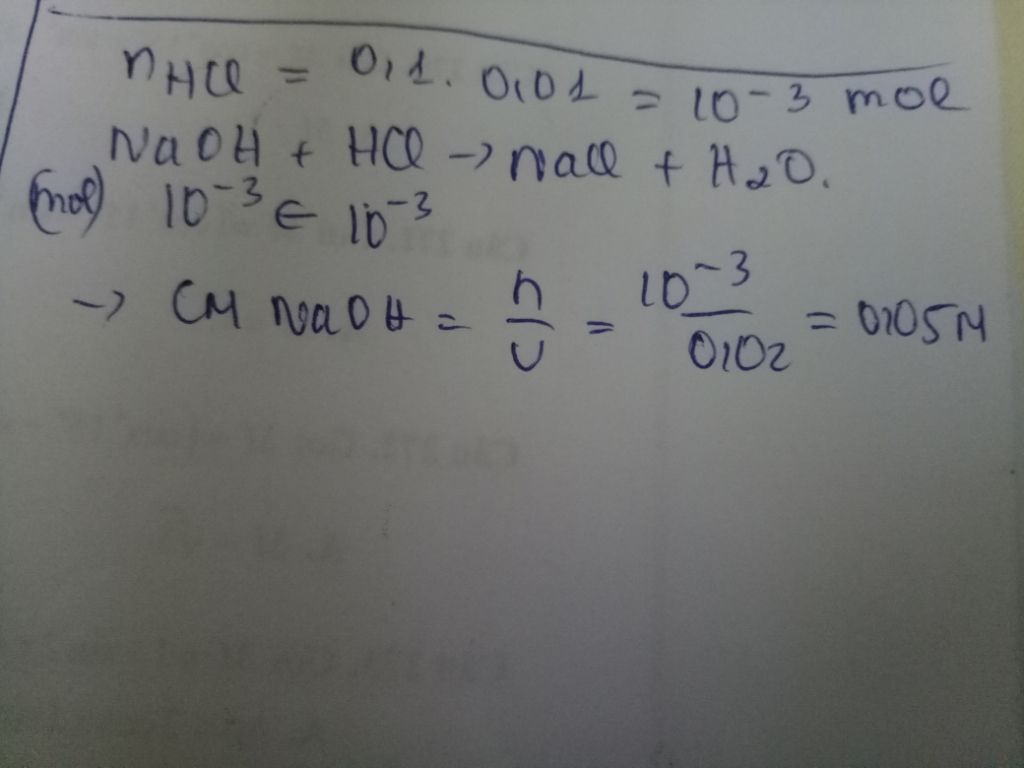 nHCl = 0,1. 0,01 = 10^-3 mol
NaOH + HCl -> NaCl + H2O.
(mol) 10^-3 ← 10^-3
-> CM NaOH = n/v = 10^-3/0,02 = 0,05M